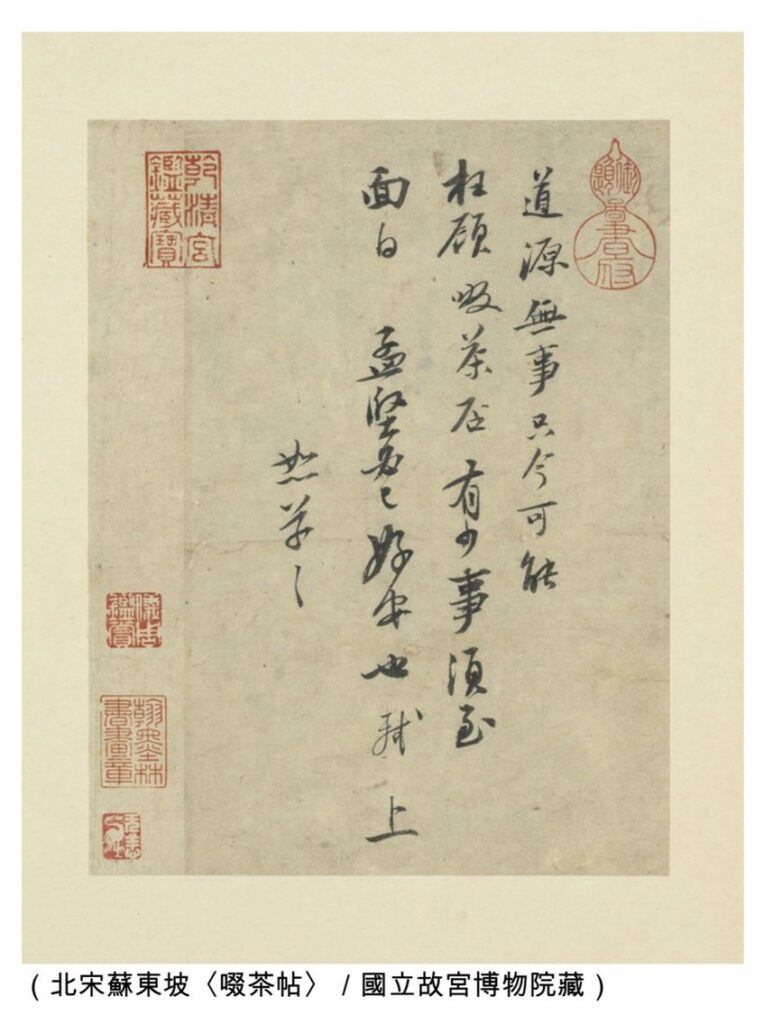 道源無事只今可能
枉顧啜茶否有少事須至
面白 孟堅必已好安也 軾 上
恕草々
乾清宮鑑藏寶
儀周鑑賞
翰墨林書畫章
(北宋蘇東坡〈啜茶帖〉 / 國立故宮博物院藏)